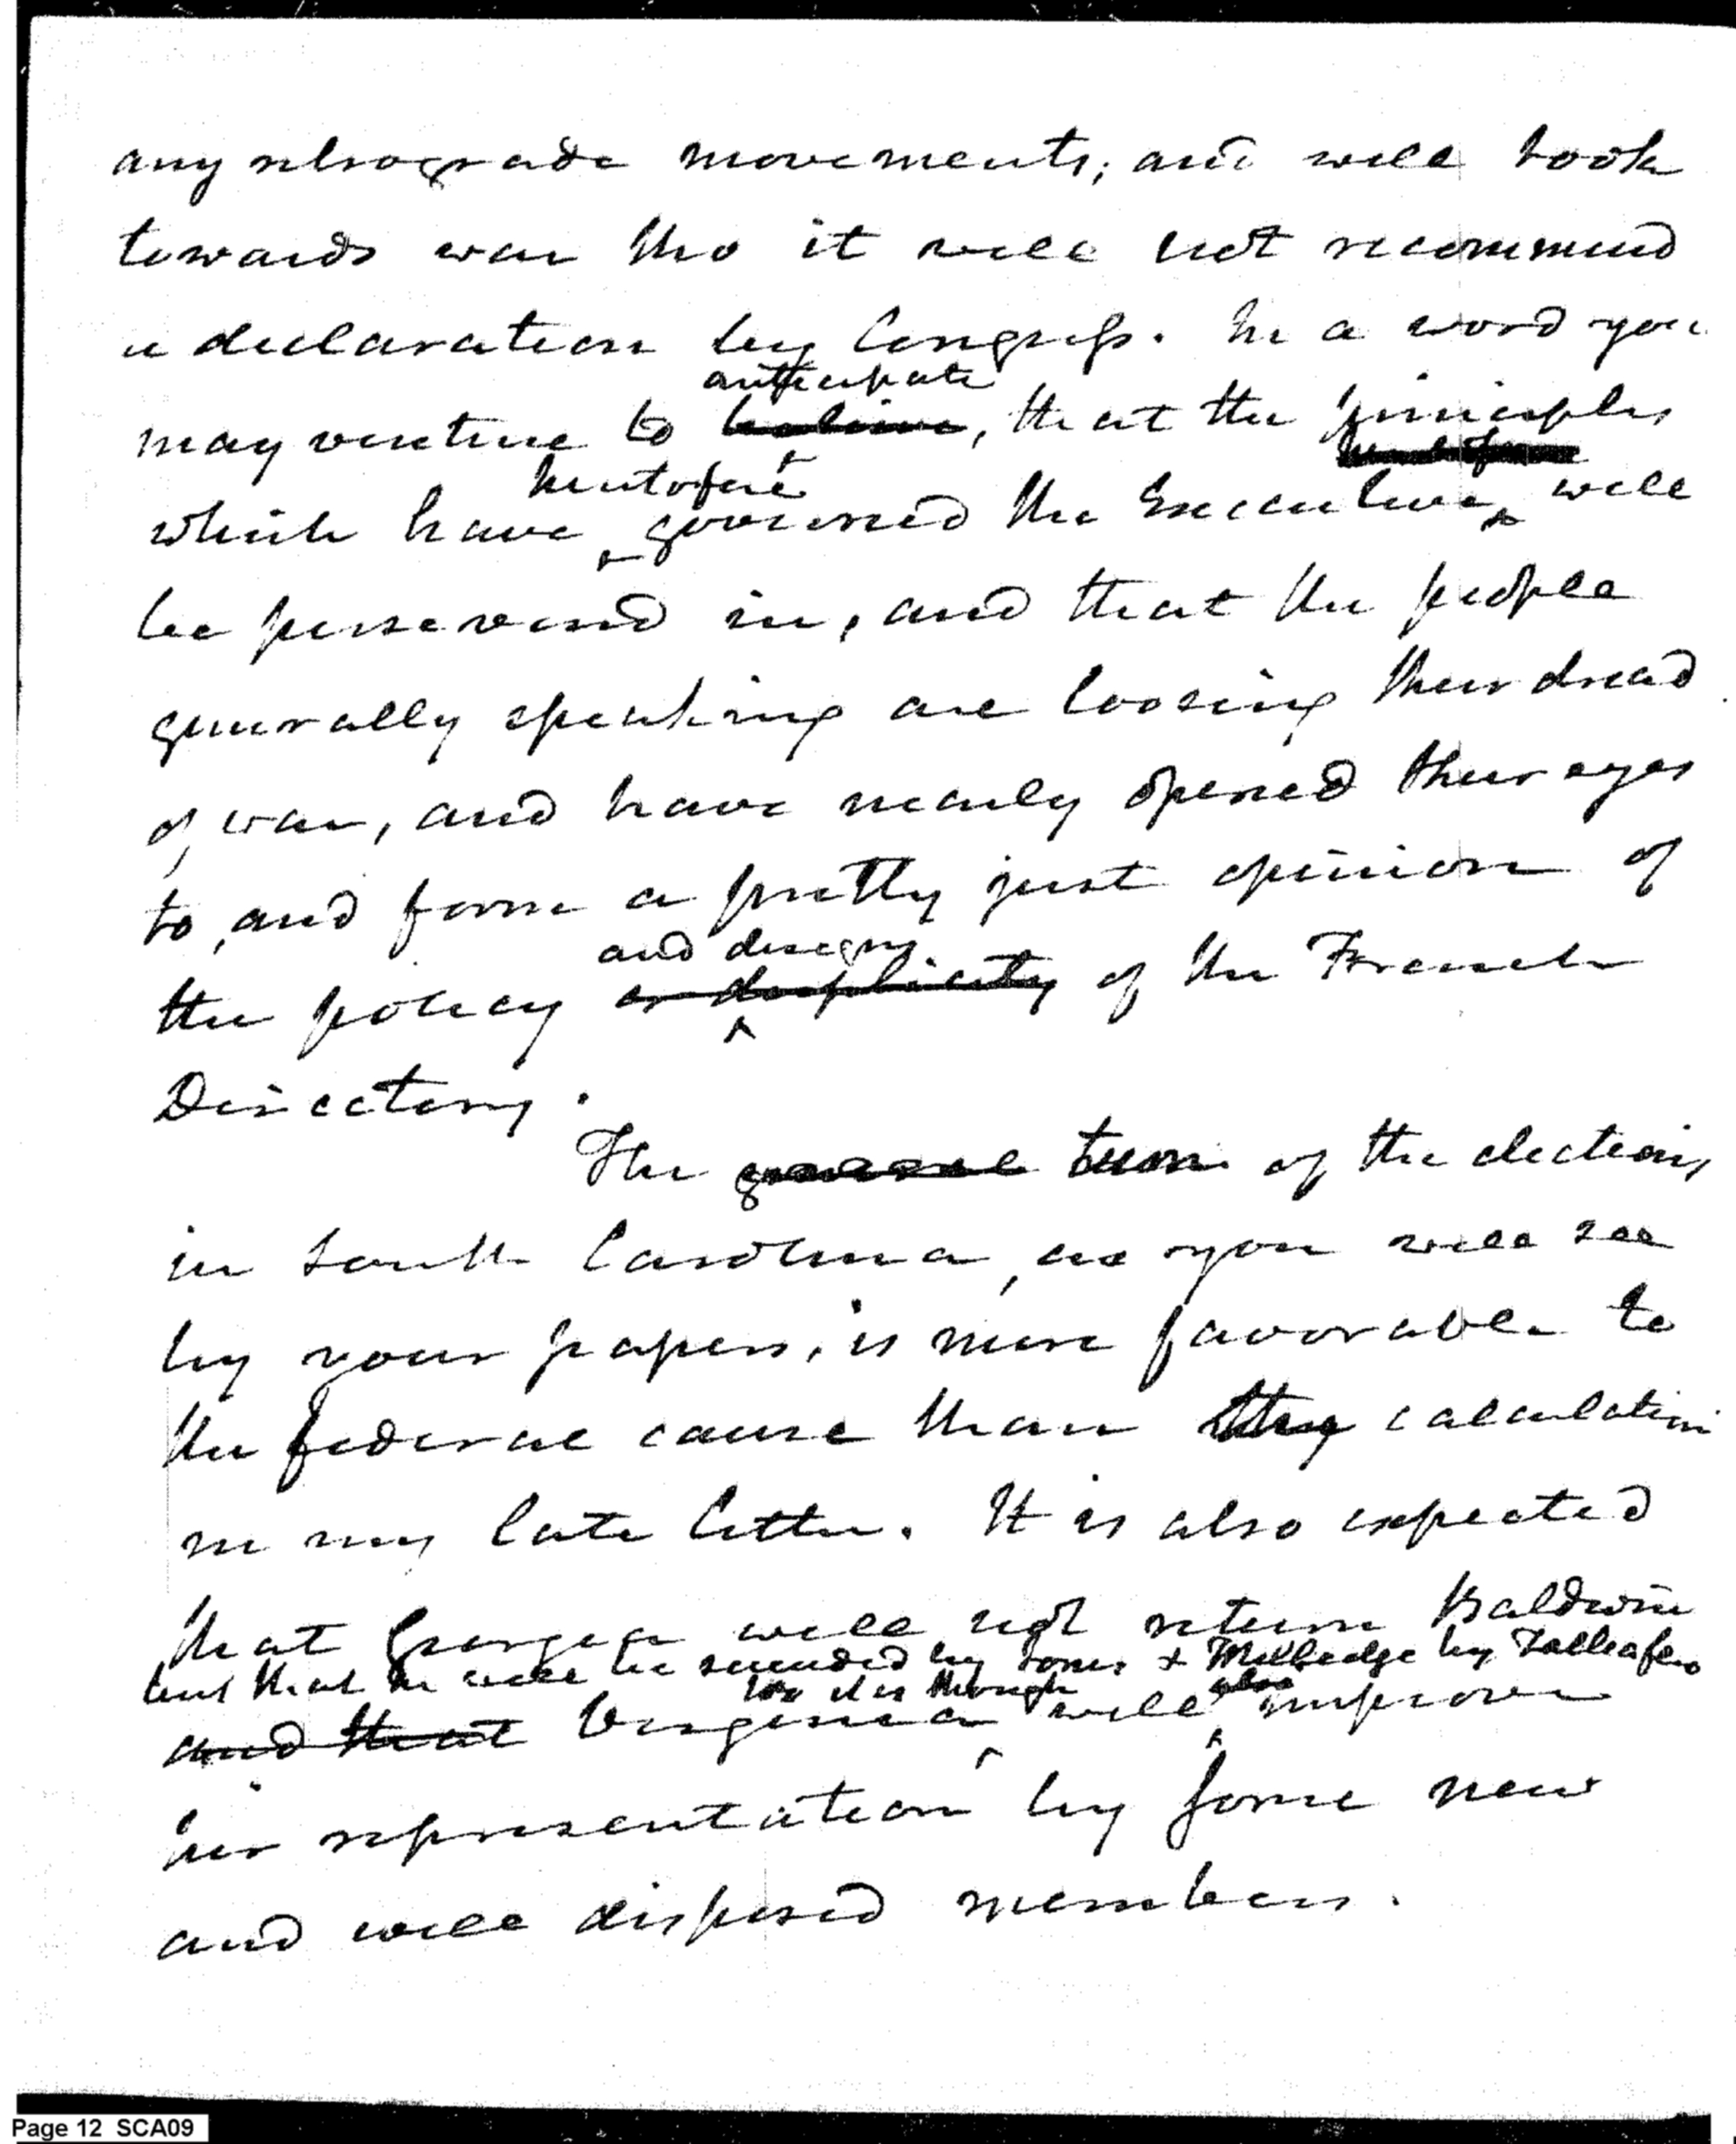 any retrograde movements; and will look
towards war tho it will not recommend
a declaration by Congress. In a word you
anticipate
may venture to believe, that the principles
heretofore heretofore
which have governed the Executive will
be persevered in, and that the people
generally speaking are loosing their dread
of war, and have nearly opened their eyes
to, and form a pretty just opinion of
and designs
the policy or duplicity of the French
Directory.
The general turn of the elections,
in South Carolina, as you will see
by your papers, is more favorable to
the federal cause than the calculation
in my late letter. It is also expected
that Georgia will not return Baldwin
but that he will be succeeded by Jones & Milledge by Talleafero
and that it is though also
Virginia will improve
her representation by some new
and well disposed members.
Page 12 SCA09